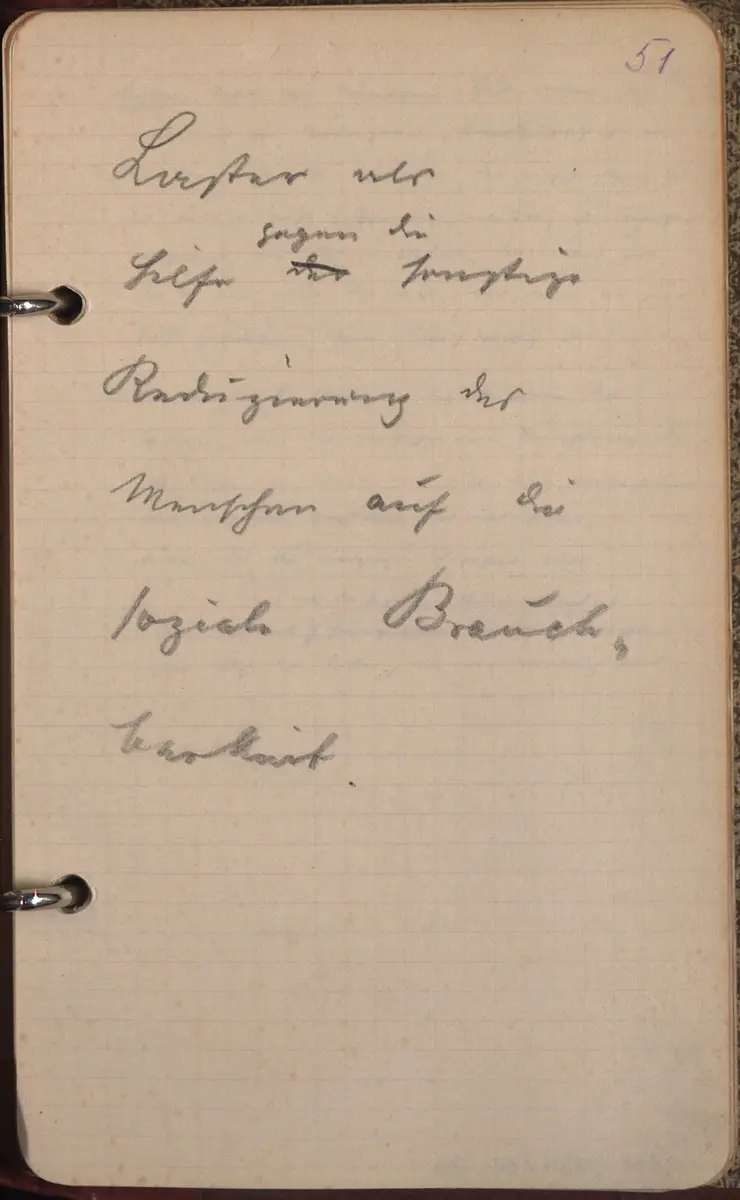 51
Laster als
gegen die
Hilfe der sonstige
Reduzierung des
Menschen auf die
soziale Brauch-
barkeit.